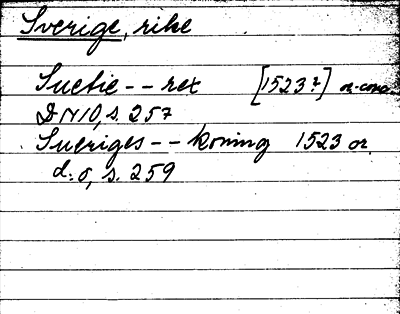 Sverige, rike
Suetie -- rex [1523?] or.conc.
DN 10, s. 257
Sueriges -- koning 1523 or.
d:o, s. 259